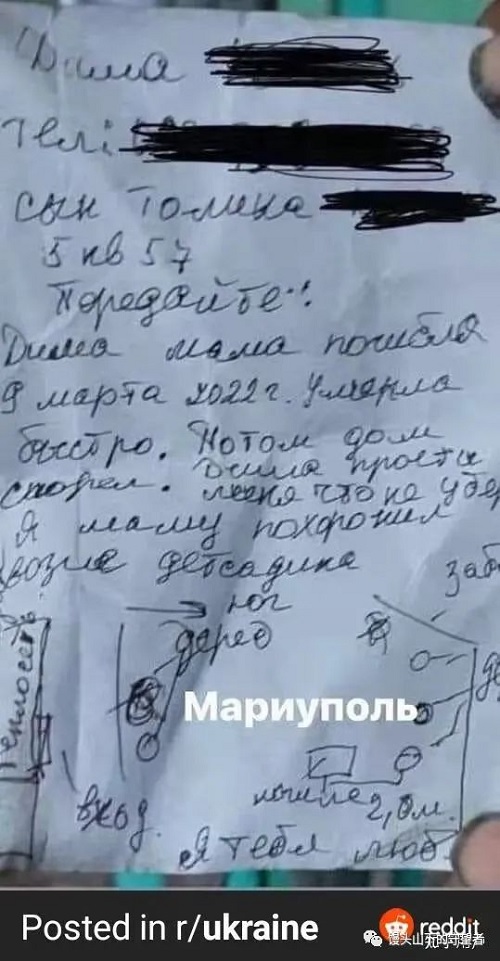 Дима
тел:
сын Толика
5 кв 57
Передайте!
Дима мама погибла
9 марта 2022 г. Умерла
быстро. Потом дом
сгорел. Дима прости
меня что не убе
Я маму похоронил
возле детсадика
заб
юг
дерев
Теплосеть
Мариуполь
де
вход.
могила 2,0м.
Я тебя люб
Posted in r/ukraine
reddit